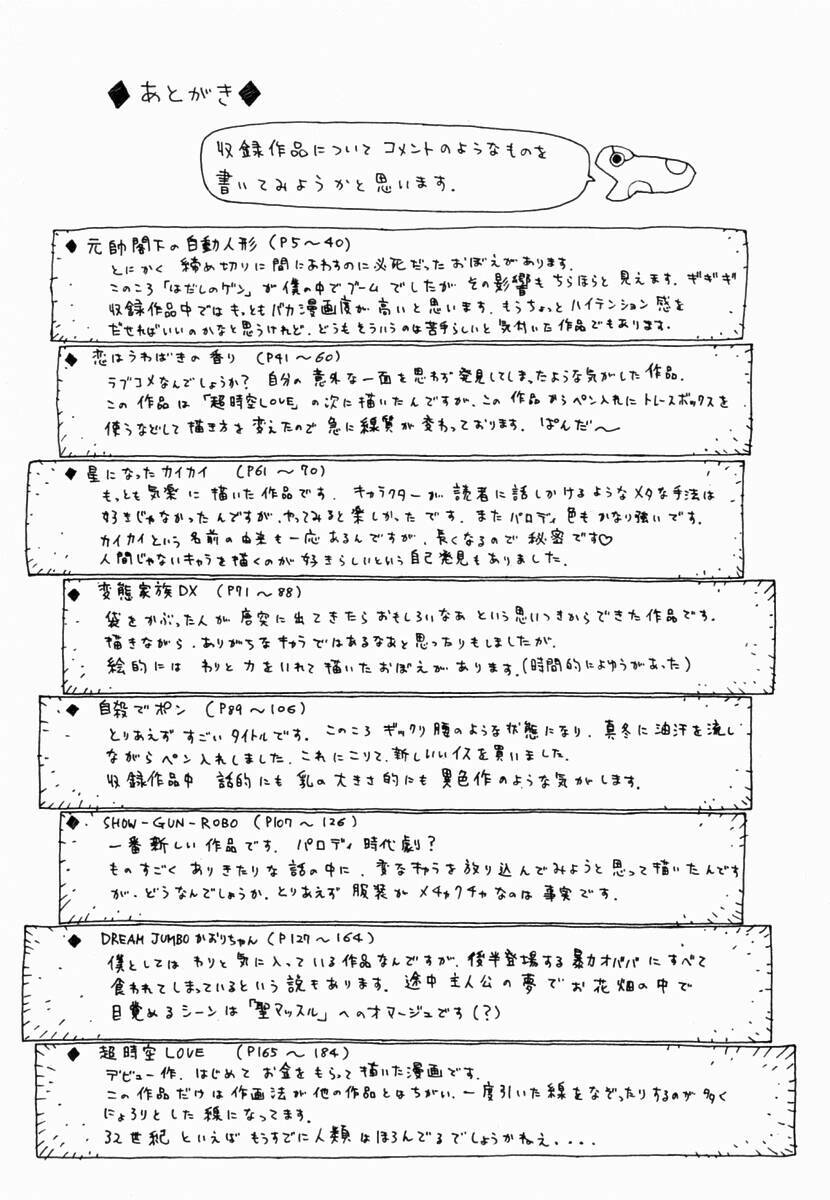 ◆あとがき◆
収録作品について コメントのようなものを
書いてみようかと思います.
◆元帥閣下の自動人形 (P5〜40)
とにかく 締め切りに間にあわすのに必死だった おぼえがあります.
このころ「はだしのゲン」が僕の中でブームでしたが その影響も ちらほらと見えます. ギギギ
収録作品中では もっともバカ漫画度が高いと思います. もうちょっとハイテンション感を
だせればいいのかなと思うけれど. どうもそういうのは苦手らしいと気付いた作品でもあります.
◆恋はうわばきの香り (P41〜60)
ラブコメなんでしょうか? 自分の意外な一面を思わず発見してしまったような気がした作品.
この作品は「超時空LOVE」の次に描いたんですが. この作品からペン入れにトレースボックスを
使うなどして描き方を変えたので 急に線質が変わっております. ぱんだ〜
◆星になったカイカイ (P61〜70)
もっとも気楽に描いた作品です. キャラクターが読者に話しかけるようなメタな手法は
好きじゃなかったんですが. やってみると楽しかったです. またパロディ色もかなり強いです.
カイカイという名前の由来も一応あるんですが. 長くなるので 秘密です♡
人間じゃないキャラを描くのが好きらしいという自己発見もありました.
◆変態家族DX (P71〜88)
袋をかぶった人が唐突に出てきたらおもしろいなあ という思いつきからできた作品です.
描きながら. ありがちなキャラではあるなあと思ったりもしましたが.
絵的には わりと力をいれて描いたおぼえがあります. (時間的によゆうがあった)
◆自殺でポン (P89〜106)
とりあえず すごいタイトルです. このころ ギックリ腰のような状態になり. 真冬に油汗を流し
ながらペン入れしました. これにこりて. 新しいいイスを買いました.
収録作品中 話的にも 乳の大きさ的にも 異色作のような気がします.
◆SHOW-GUN-ROBO (P107〜126)
一番新しい作品です. パロディ時代劇?
ものすごく ありきたりな話の中に. 変なキャラを放り込んでみようと思って描いたんです
が. どうなんでしょうか. とりあえず 服装がメチャクチャなのは 事実です.
◆DREAM JUMBOかおりちゃん (P127〜164)
僕としては わりと気に入っている作品なんですが. 後半登場する暴力オパパにすべて
食われてしまっているという説もあります. 途中主人公の夢でお花畑の中で
目覚めるシーンは「聖マッスル」へのオマージュです(?)
◆超時空LOVE (P165〜184)
デビュー作. はじめて お金をもらって描いた漫画です.
この作品だけは作画法が他の作品とはちがい. 一度引いた線をなぞったりするのが多く
にょろりとした線になってます.
32世紀といえば もうすでに人類はほろんでるでしょうかねえ....